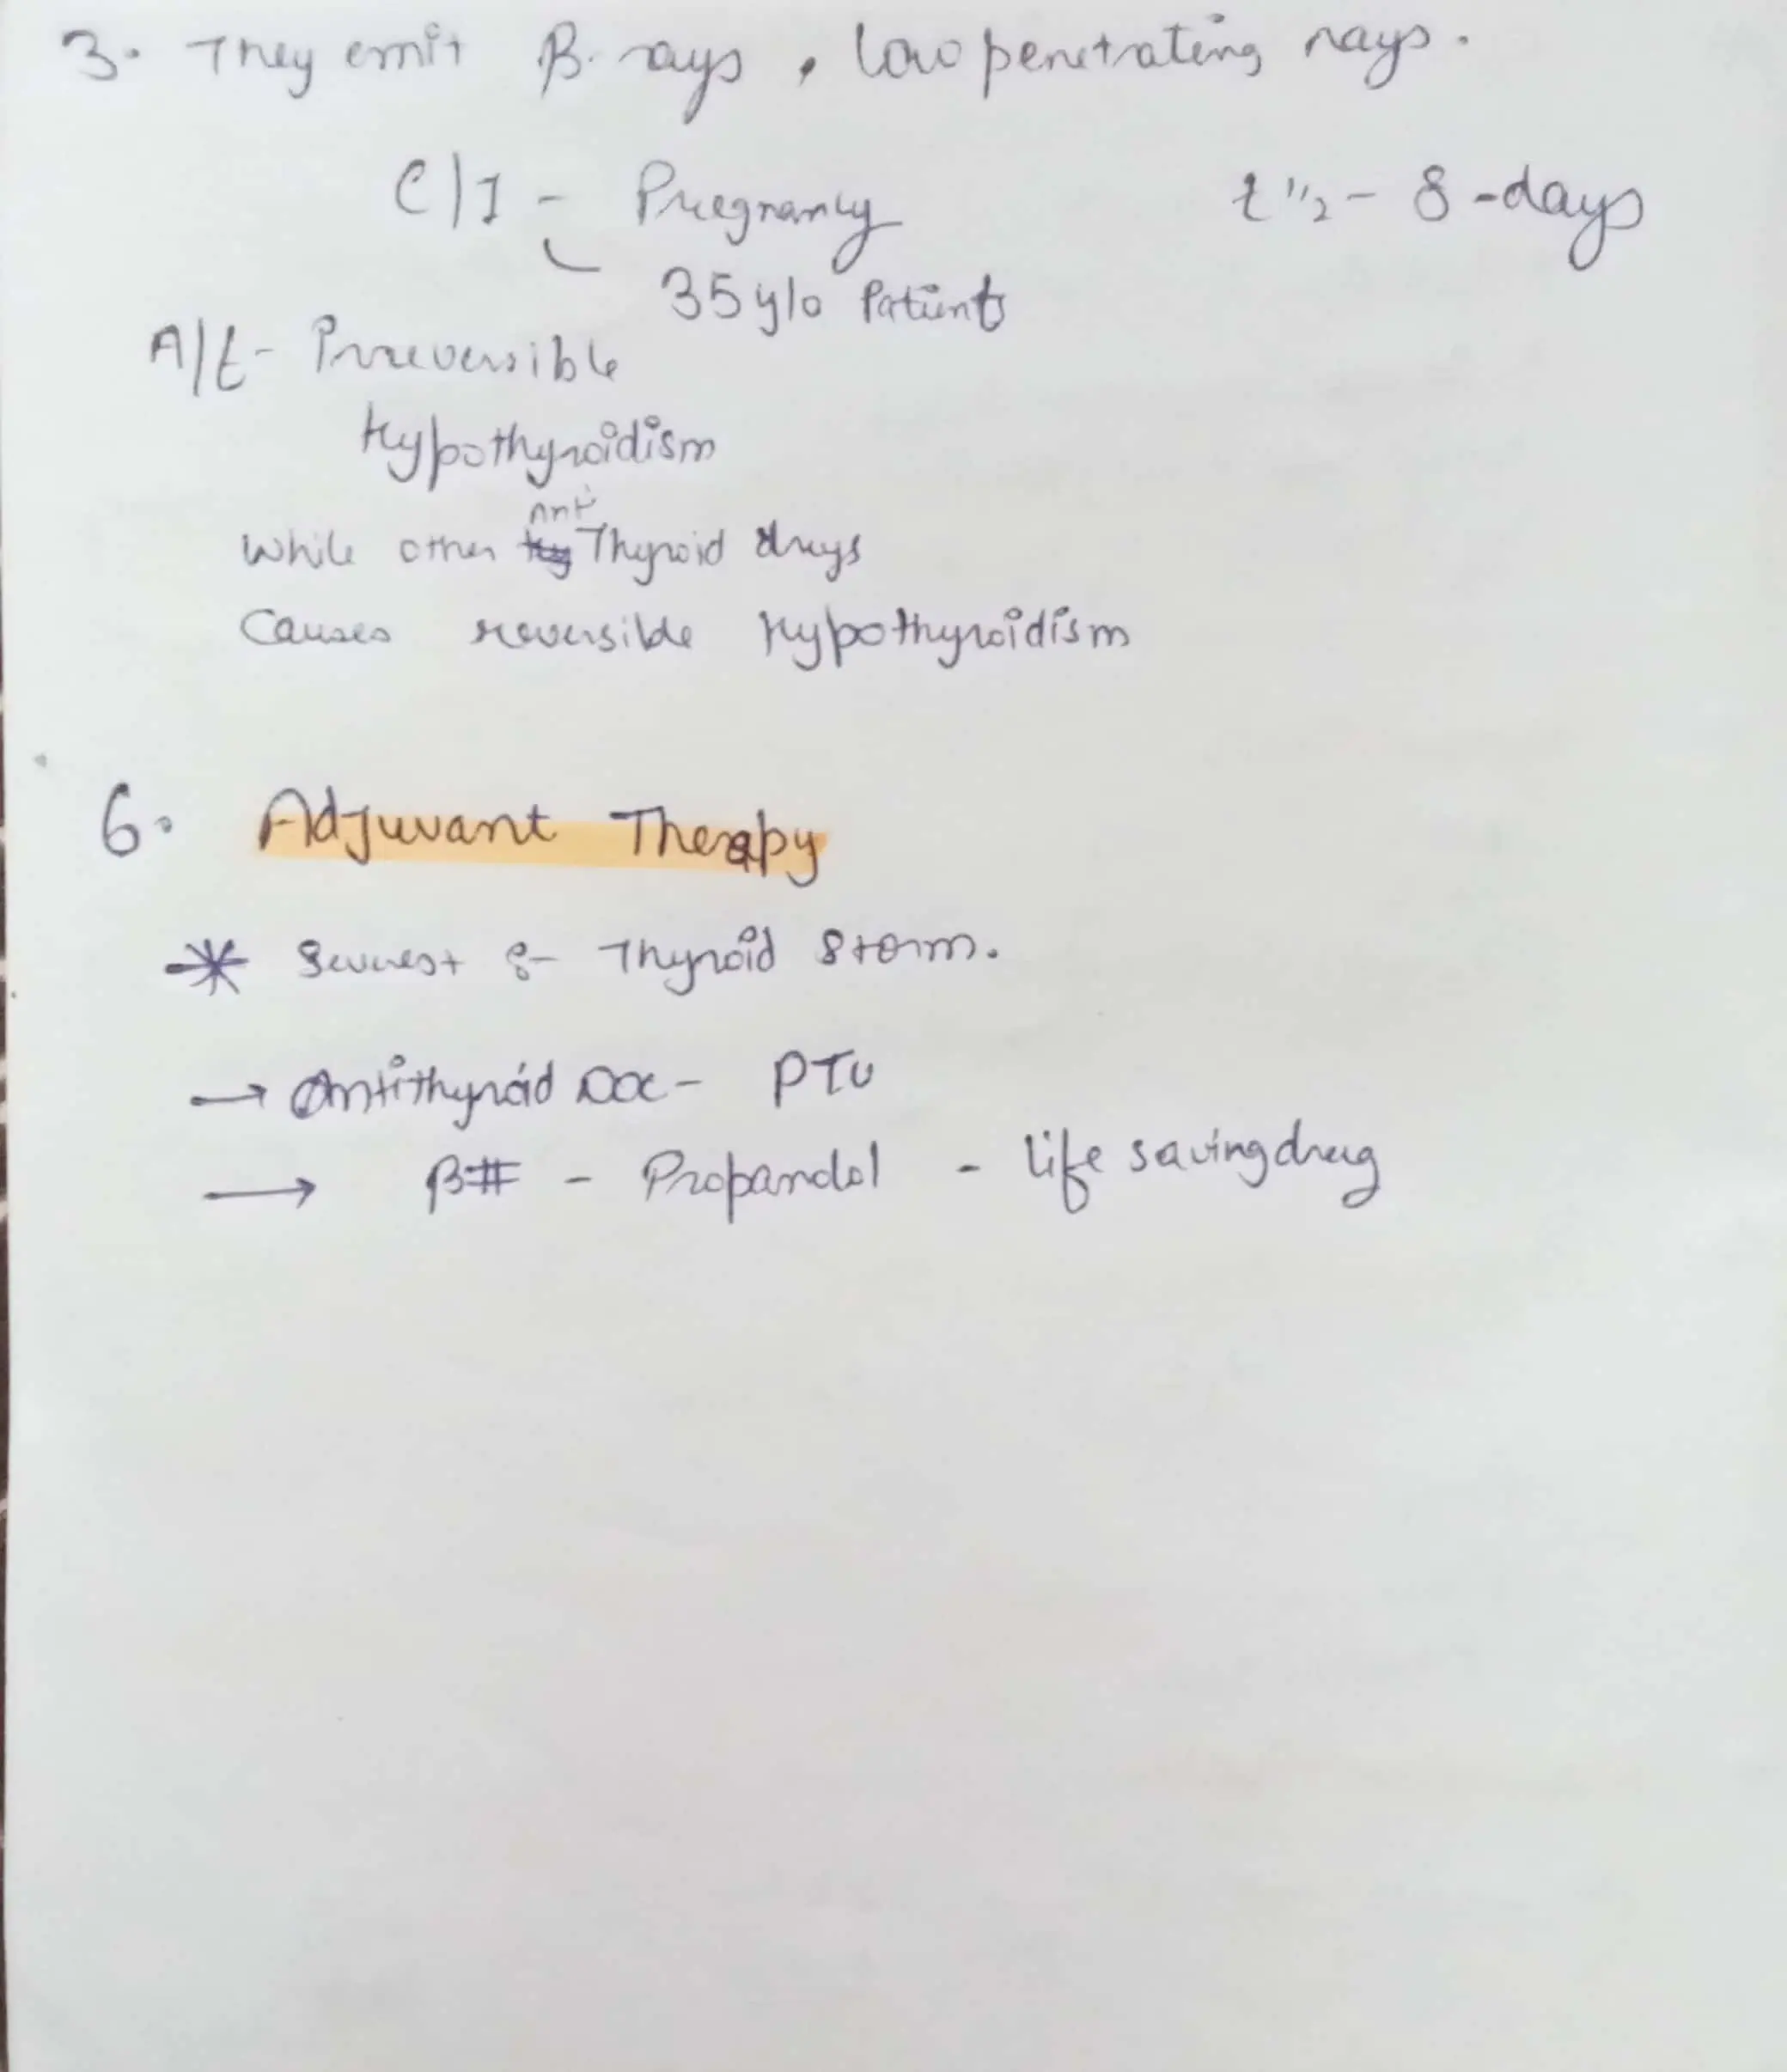 3. They emit β-rays, low penetrating rays.
C/I - Pregnancy t 1/2 - 8-days
35 y/o Patients
A/E - Irreversible
Hypothyroidism
While other Anti Thyroid drugs
Causes reversible Hypothyroidism
6. Adjuvant Therapy
* Severest :- Thyroid Storm.
→ Antithyroid DOC - PTU
→ β# - Propandol - life saving drug